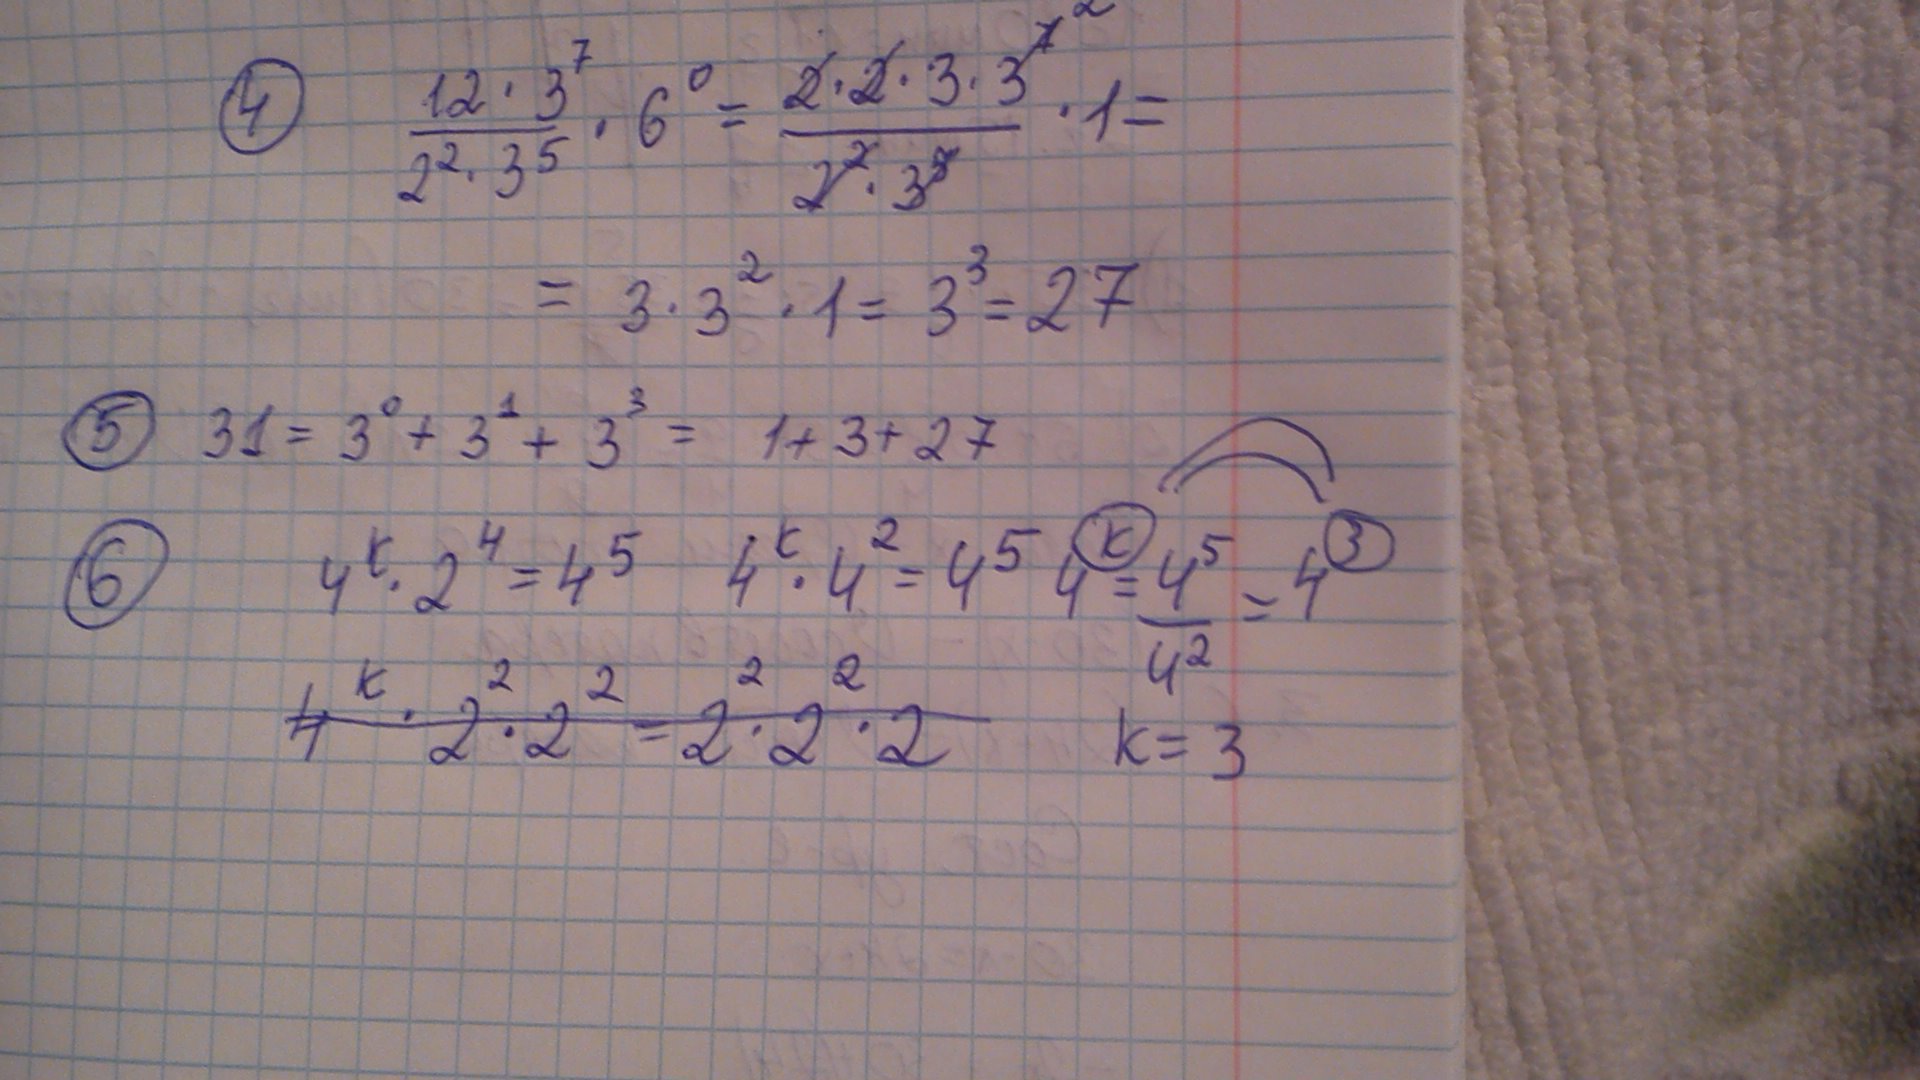 ④ \frac{12 · 3^7}{2^2 · 3^5} · 6^0 = \frac{2 · 2 · 3 · 3^{7 2}}{2^2 · 3^5} · 1 =
= 3 · 3^2 · 1 = 3^3 = 27
⑤ 31 = 3^0 + 3^1 + 3^3 = 1 + 3 + 27
⑥ 4^k · 2^4 = 4^5 4^k · 4^2 = 4^5 4^k = \frac{4^5}{4^2} = 4^3
4^k · 2^2 · 2^2 = 2^2 · 2^2 · 2 k = 3